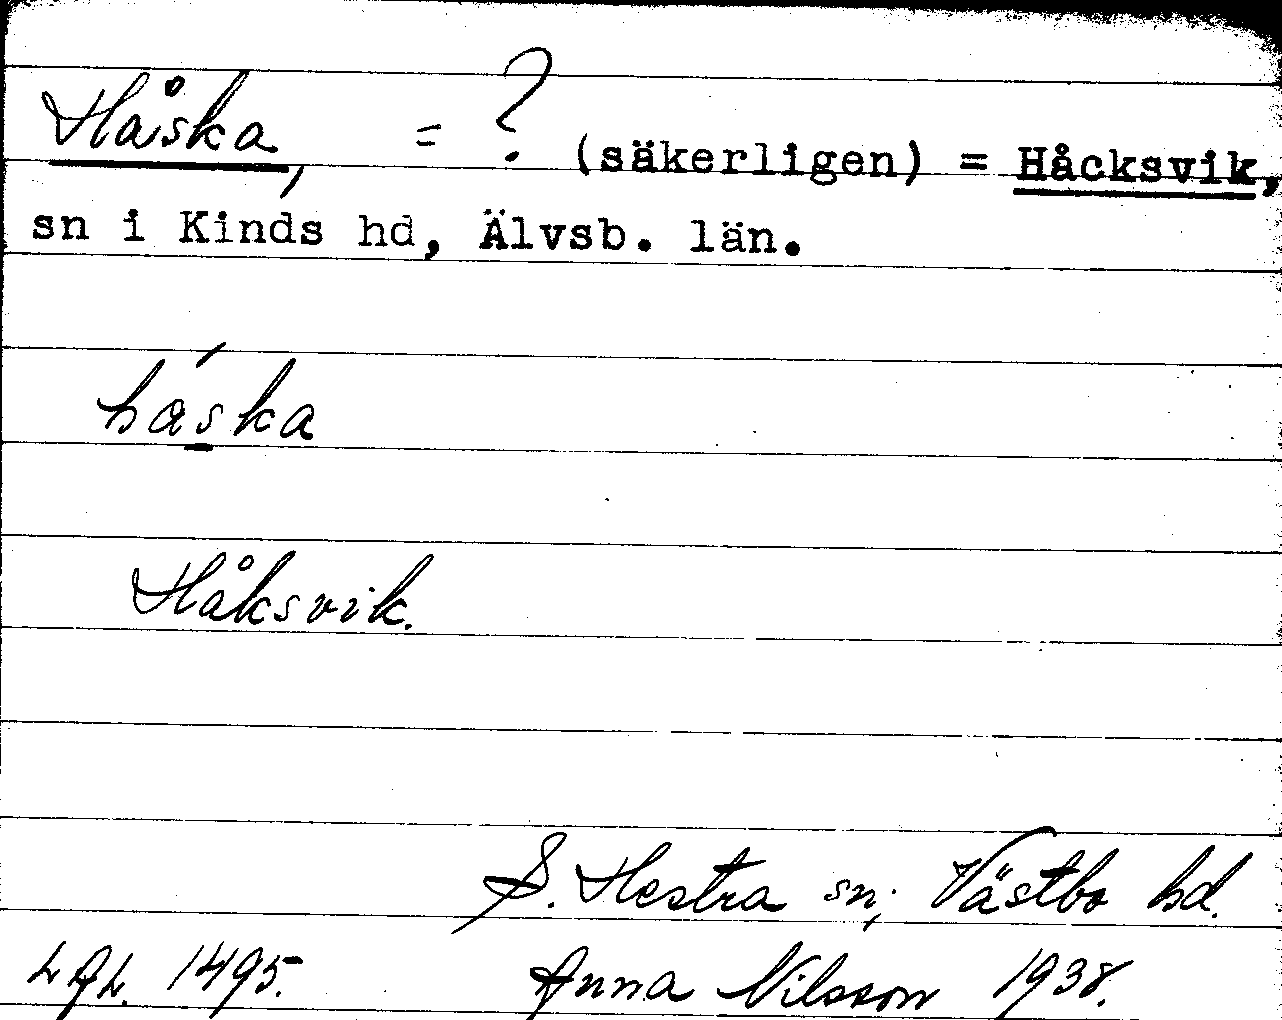 Håska, = ? (säkerligen) = Håcksvik,
sn i Kinds hd, Älvsb. län.
háska
Håksvik.
S. Hestra sn; Västbo hd.
1495. Anna Nilsson 1938.